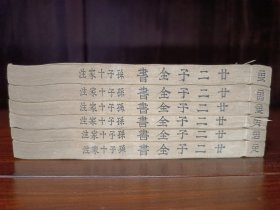 廿二子全書 孫子十家注
廿二子全書 孫子十家注
廿二子全書 孫子十家注
廿二子全書 孫子十家注
廿二子全書 孫子十家注
廿二子全書 孫子十家注